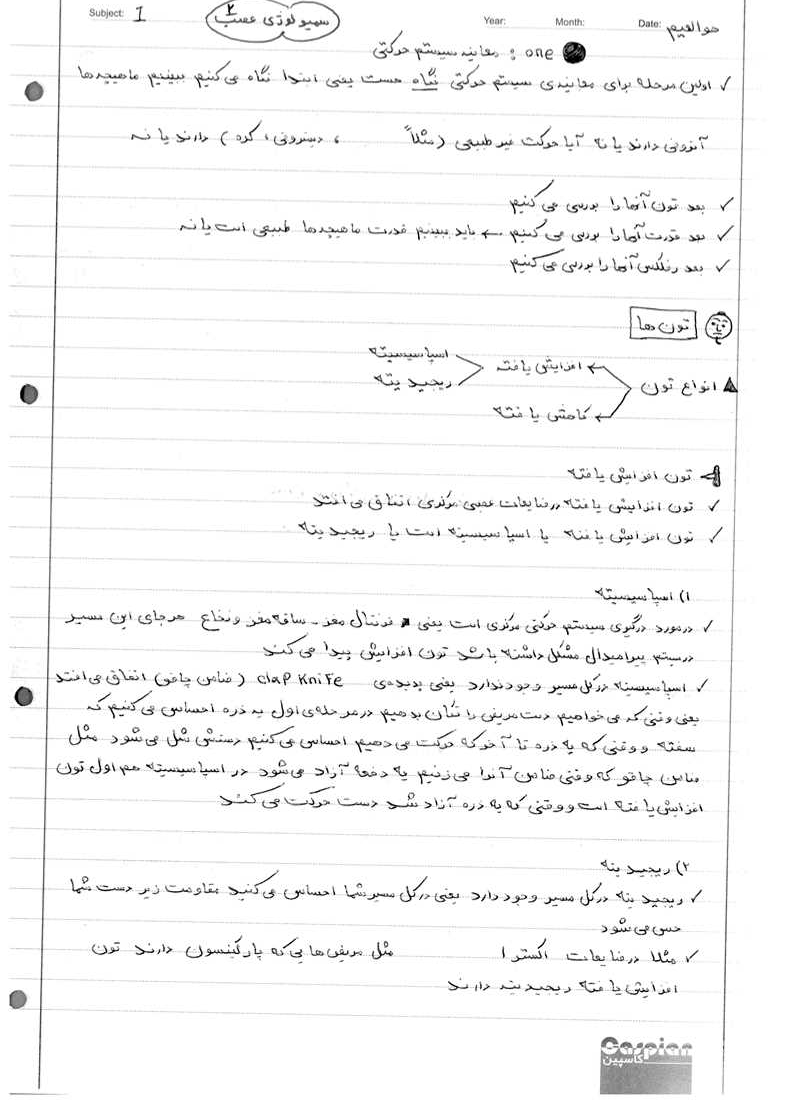 Subject: 1
سمیولوژی عصب ۲
Year: Month: Date:
هوالعلیم
one : معاینه سیستم حرکتی
✓ اولین مرحله برای معاینه‌ی سیستم حرکتی نگاه هست یعنی ابتدا نگاه می کنیم ببینیم ماهیچه‌ها
آتروفی دارند یا نه آیا حرکت غیر طبیعی (مثلاً ، دیستونی، کره) دارند یا نه
✓ بعد تون آنها را بررسی می کنیم
✓ بعد قدرت آنها را بررسی می کنیم ← باید ببینیم قدرت ماهیچه‌ها طبیعی است یا نه
✓ بعد رفلکس آنها را بررسی می کنیم
تون ها
انواع تون
افزایش یافته
اسپاسیسیته
ریجیدیته
کاهش یافته
تون افزایش یافته
✓ تون افزایش یافته در ضایعات عصبی مرکزی اتفاق می افتد
✓ تون افزایش یافته یا اسپاسیسیته است یا ریجیدیته
۱) اسپاسیسیته
✓ در مورد درگیری سیستم حرکتی مرکزی است یعنی فرنتال مغز - ساقه مغز و نخاع هر جای این مسیر
در سیستم پیرامیدال مشکل داشته باشد تون افزایش پیدا می کند
✓ اسپاسیسیته در کل مسیر وجود ندارد یعنی پدیده‌ی clap knife (ضامن چاقو) اتفاق می افتد
یعنی وقتی که می خواهیم دست مریض را تکان بدهیم در مرحله‌ی اول یه ذره احساس می کنیم که
سفته و وقتی که یه ذره تا آخر که حرکت می دهیم احساس می کنیم دستش شل می شود مثل
ضامن چاقو که وقتی ضامن آنرا می زنیم یه دفعه آزاد می شود در اسپاسیسیته هم اول تون
افزایش یافته است و وقتی که یه ذره آزاد شد دست حرکت می کند
۲) ریجیدیته
✓ ریجیدیته در کل مسیر وجود دارد یعنی در کل مسیر شما احساس می کنید مقاومت زیر دست شما
حس می شود
✓ مثلا در ضایعات اکسترا مثل مریض هایی که پارکینسون دارند تون
افزایش یافته ریجیدیته دارند
Caspian
کاسپین